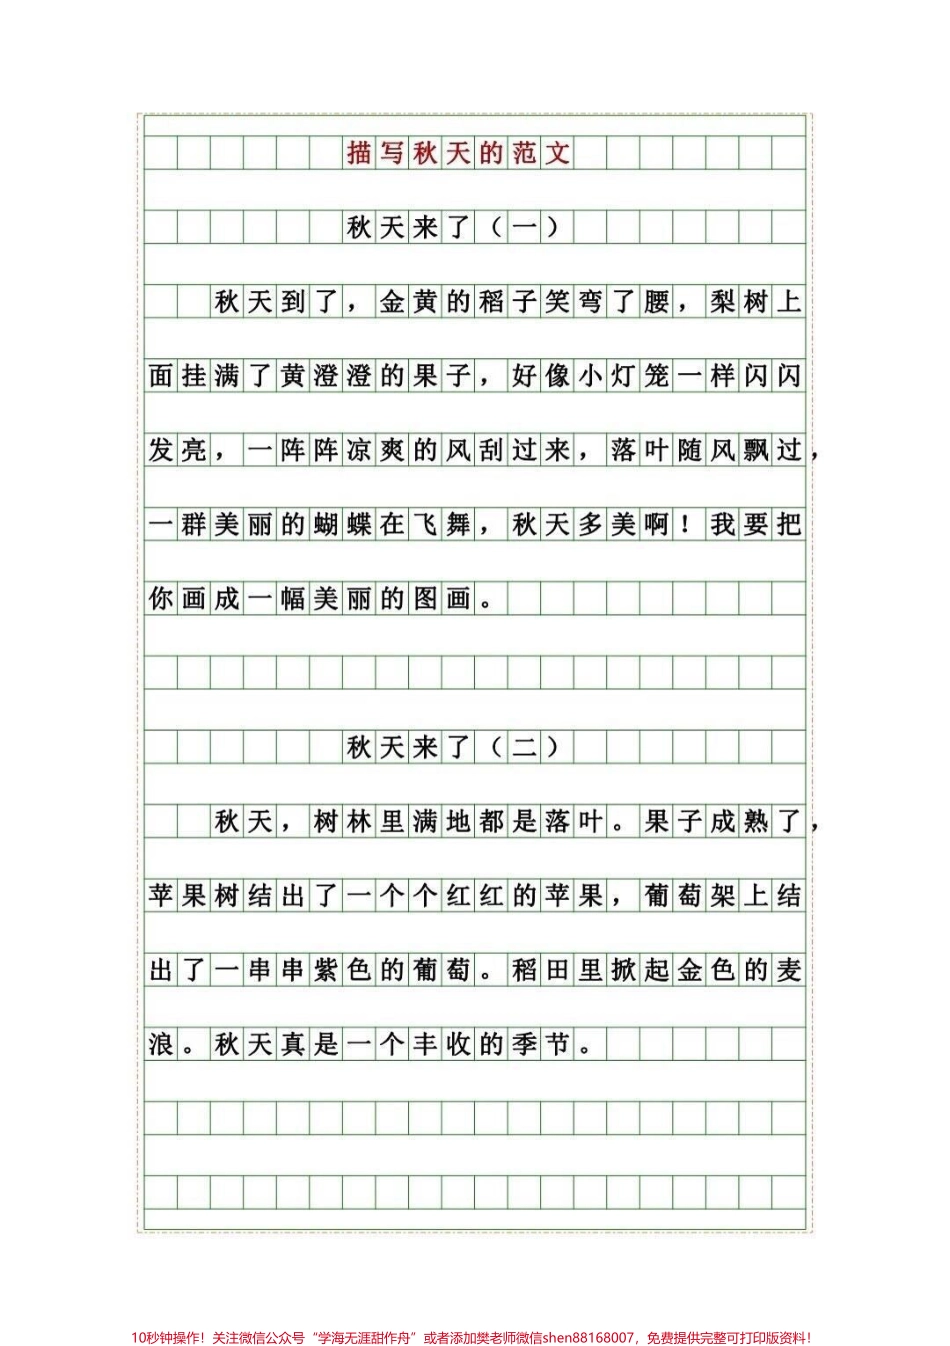 描写秋天的范文
秋天来了（一）
秋天到了，金黄的稻子笑弯了腰，梨树上
面挂满了黄澄澄的果子，好像小灯笼一样闪闪
发亮，一阵阵凉爽的风刮过来，落叶随风飘过，
一群美丽的蝴蝶在飞舞，秋天多美啊！我要把
你画成一幅美丽的图画。
秋天来了（二）
秋天，树林里满地都是落叶。果子成熟了，
苹果树结出了一个个红红的苹果，葡萄架上结
出了一串串紫色的葡萄。稻田里掀起金色的麦
浪。秋天真是一个丰收的季节。
10秒钟操作！关注微信公众号“学海无涯甜作舟”或者添加樊老师微信shen88168007，免费提供完整可打印版资料！